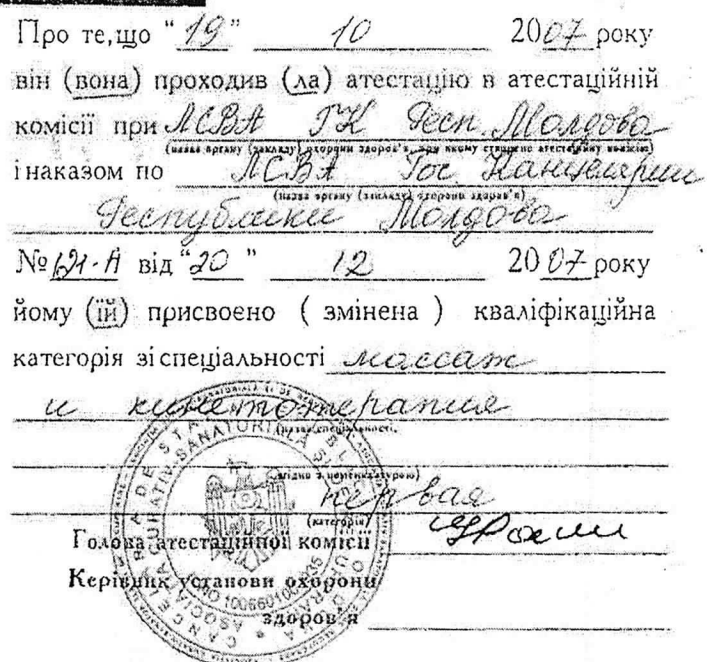 Про те,що "19" 10 2007 року
він (вона) проходив (ла) атестацію в атестаційній
комісії при ЛСВА ГК Респ. Молдова
(назва органу (закладу) охорони здоров'я, при якому створено атестаційну комісію)
і наказом по ЛСВА Гос Канцелярии
(назва органу (закладу) охорони здоров'я)
Республики Молдова
№ 121-А від "20" 12 2007 року
йому (їй) присвоєно ( змінена ) кваліфікаційна
категорія зі спеціальності массаж
и кинетотерапия
(назва спеціальності,
згідно з номенклатурою)
первая
(категорія)
Голова атестаційної комісії
Керівник установи охорони
здоров'я